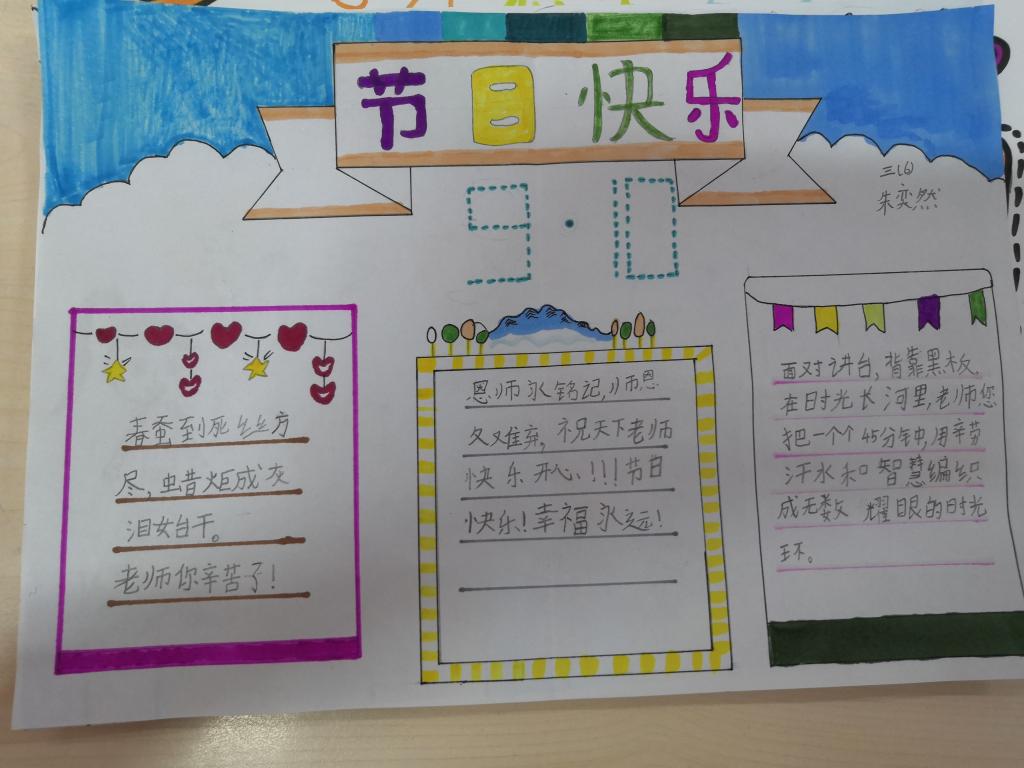 节日快乐
三(6)
朱奕然
9·10
春蚕到死丝丝方
尽,虫昔炬成灰
泪女台干。
老师你辛苦了!
恩师永铭记,师恩
久难弃,祝天下老师
快乐开心!!!节日
快乐!幸福永远!
面对讲台,背靠黑板,
在日时光长河里,老师您
把一个个45分钟,用辛劳
汗水和智慧编织
成无数耀眼的日时光
王环。